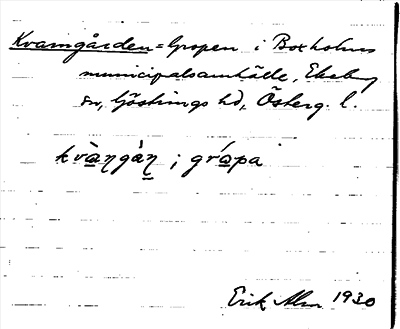 Kvarngården = Gropen i Boxholms
municipalsamhälle, Ekeby
sn, Göstrings hd, Österg. l.
kvàŋgàṉ ; gråpa
Erik Alm 1930